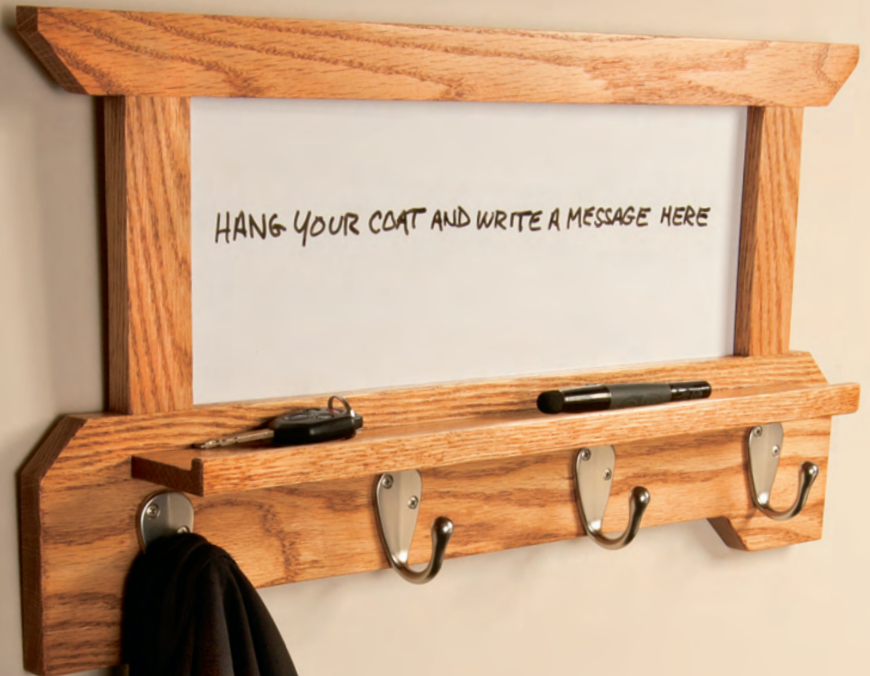 HANG YOUR COAT AND WRITE A MESSAGE HERE